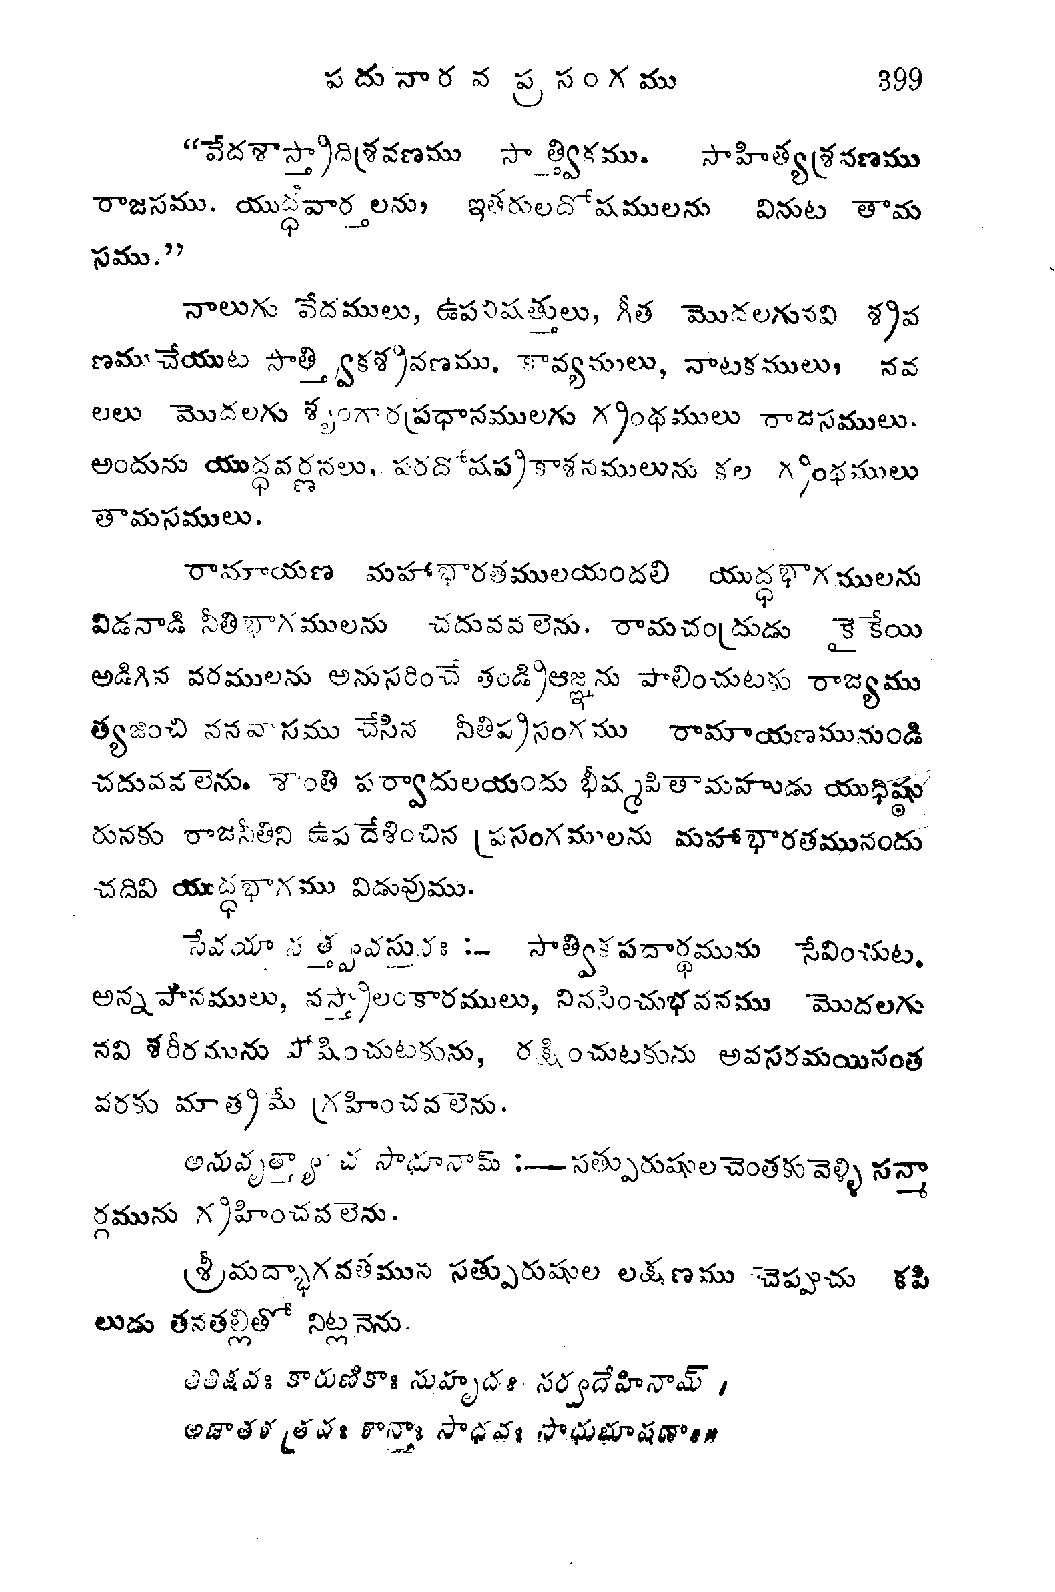 పదునారవ ప్రసంగము 399
“వేదశాస్త్రాదిశ్రవణము సాత్త్వికము. సాహిత్యశ్రవణము
రాజసము. యుద్ధవార్తలను, ఇతరులదోషములను వినుట తామ
సము.”
నాలుగు వేదములు, ఉపనిషత్తులు, గీత మొదలగునవి శ్రవ
ణముచేయుట సాత్త్వికశ్రవణము. కావ్యములు, నాటకములు, నవ
లలు మొదలగు శృంగారప్రధానములగు గ్రంథములు రాజసములు.
అందును యుద్ధవర్ణనలు, పరదోషప్రకాశనములును కల గ్రంథములు
తామసములు.
రామాయణ మహాభారతములయందలి యుద్ధభాగములను
విడనాడి నీతిభాగములను చదువవలెను. రామచంద్రుడు కైకేయి
అడిగిన వరములను అనుసరించే తండ్రిఆజ్ఞను పాలించుటకు రాజ్యము
త్యజించి వనవాసము చేసిన నీతిప్రసంగము రామాయణమునుండి
చదువవలెను. శాంతి పర్వాదులయందు భీష్మపితామహుడు యుధిష్ఠి
రునకు రాజనీతిని ఉపదేశించిన ప్రసంగములను మహాభారతమునందు
చదివి యుద్ధభాగము విడువుము.
సేవయా సత్త్వవస్తునః :— సాత్త్వికపదార్థమును సేవించుట.
అన్నపానములు, వస్త్రాలంకారములు, నివసించుభవనము మొదలగు
నవి శరీరమును పోషించుటకును, రక్షించుటకును అవసరమయినంత
వరకు మాత్రమే గ్రహించవలెను.
అనువృత్త్యా చ సాధూనామ్ :—సత్పురుషులచెంతకువెళ్ళి సన్మా
ర్గమును గ్రహించవలెను.
శ్రీమద్భాగవతమున సత్పురుషుల లక్షణము చెప్పుచు కపి
లుడు తనతల్లితో నిట్లనెను.
తితిక్షవః కారుణికాః సుహృదః సర్వదేహినామ్ ।
అజాతశత్రవః శాన్తాః సాధవః సాధుభూషణాః॥